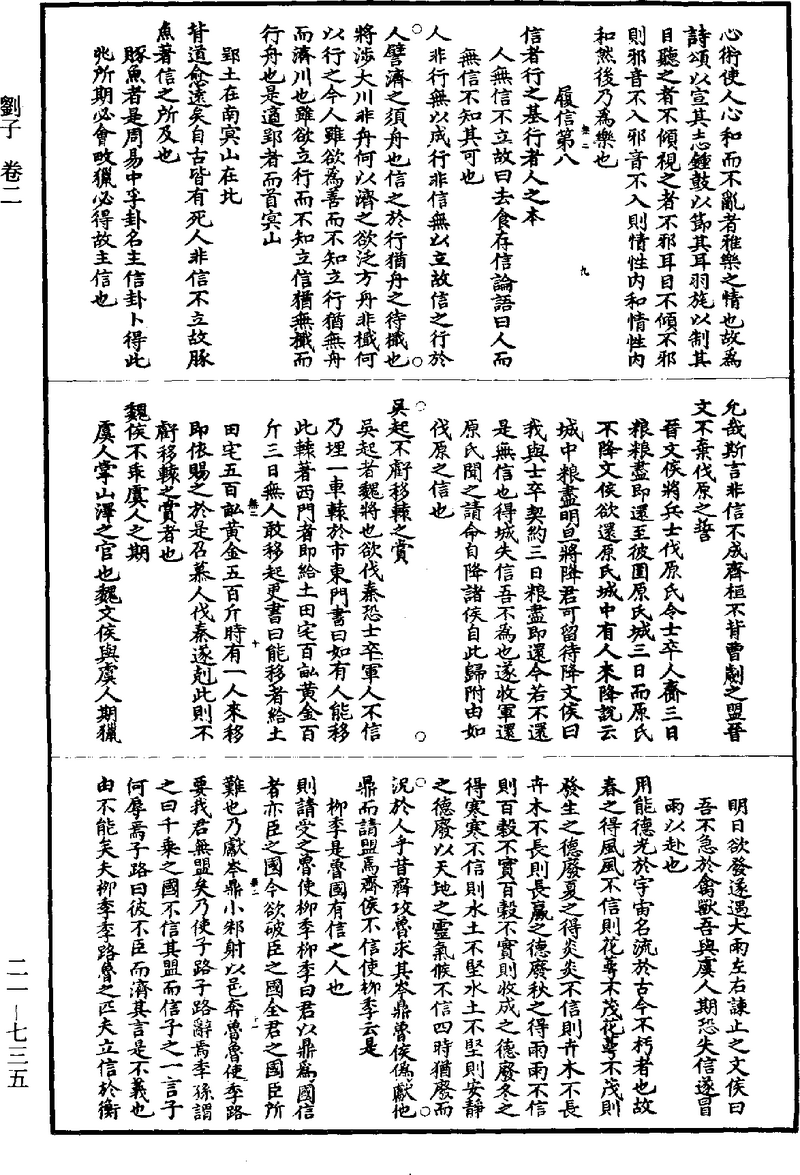 劉子 卷二
心術使人心和而不亂者雅樂之情也故為
詩頌以宣其志鍾鼓以節其耳羽旄以制其
目聽之者不傾視之者不邪耳目不傾不邪
則邪音不入邪音不入則情性內和情性內
和然後乃為樂也
卷二
九
履信第八
信者行之基行者人之本
人無信不立故曰去食存信論語曰人而
無信不知其可也
人非行無以成行非信無以立故信之行於
人譬濟之須舟也信之於行猶舟之待檝也
將涉大川非舟何以濟之欲泛方舟非檝何
以行之今人雖欲為善而不知立行猶無舟
而濟川也雖欲立行而不知立信猶無檝而
行舟也是適郢者而首冥山
郢土在南冥山在北
背道愈遠矣自古皆有死人非信不立故豚
魚著信之所及也
豚魚者是周易中孚卦名主信卦卜得此
兆所期必會畋獵必得故主信也
允哉斯言非信不成齊桓不背曹劌之盟晉
文不棄伐原之誓
晉文侯將兵士伐原氏令士卒人齎三日
粮粮盡即還至彼圍原氏城三日而原氏
不降文侯欲還原氏城中有人來降說云
城中粮盡明旦將降君可留待降文侯曰
我與士卒契約三日粮盡即還今若不還
是無信也得城失信吾不為也遂收軍還
原氏聞之請命自降諸侯自此歸附由如
伐原之信也
吳起不虧移轅之賞
吳起者魏將也欲伐秦恐士卒軍人不信
乃埋一車轅於市東門書曰如有人能移
此轅著西門者即給土田宅百畝黃金百
斤三日無人敢移起更書曰能移者給土
卷二
十
田宅五百畝黃金五百斤時有一人來移
即依賜之於是召募人伐秦遂剋此則不
虧移轅之賞者也
魏侯不乖虞人之期
虞人掌山澤之官也魏文侯與虞人期獵
明日欲發遂遇大雨左右諫止之文侯曰
吾不急於禽獸吾與虞人期恐失信遂冒
雨以赴也
用能德光於宇宙名流於古今不朽者也故
春之得風風不信則花萼不茂花萼不茂則
發生之德廢夏之得炎炎不信則卉木不長
卉木不長則長嬴之德廢秋之得雨雨不信
則百穀不實百穀不實則收成之德廢冬之
得寒寒不信則水土不堅水土不堅則安靜
之德廢以天地之靈氣候不信四時猶廢而
況於人乎昔齊攻魯求其岑鼎魯侯偽獻他
鼎而請盟焉齊侯不信使柳季云是
柳季是魯國有信之人也
則請受之魯使柳季柳季曰君以鼎為國信
者亦臣之國今欲破臣之國全君之國臣所
卷二
難也乃獻岑鼎小邾射以邑奔魯魯使季路
要我君無盟矣乃使子路子路辭焉季孫謂
之曰千乘之國不信其盟而信子之一言子
何辱焉子路曰彼不臣而濟其言是不義也
由不能矣夫柳季季路魯之匹夫立信於衡
二一—七三五